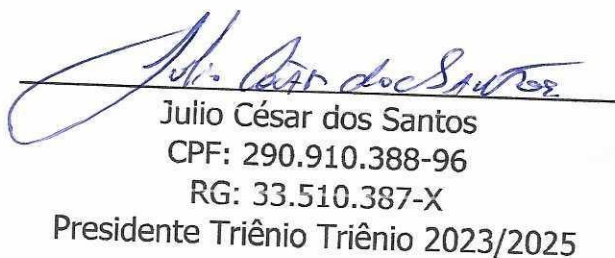 Julio César dos Santos
Julio César dos Santos
CPF: 290.910.388-96
RG: 33.510.387-X
Presidente Triênio Triênio 2023/2025